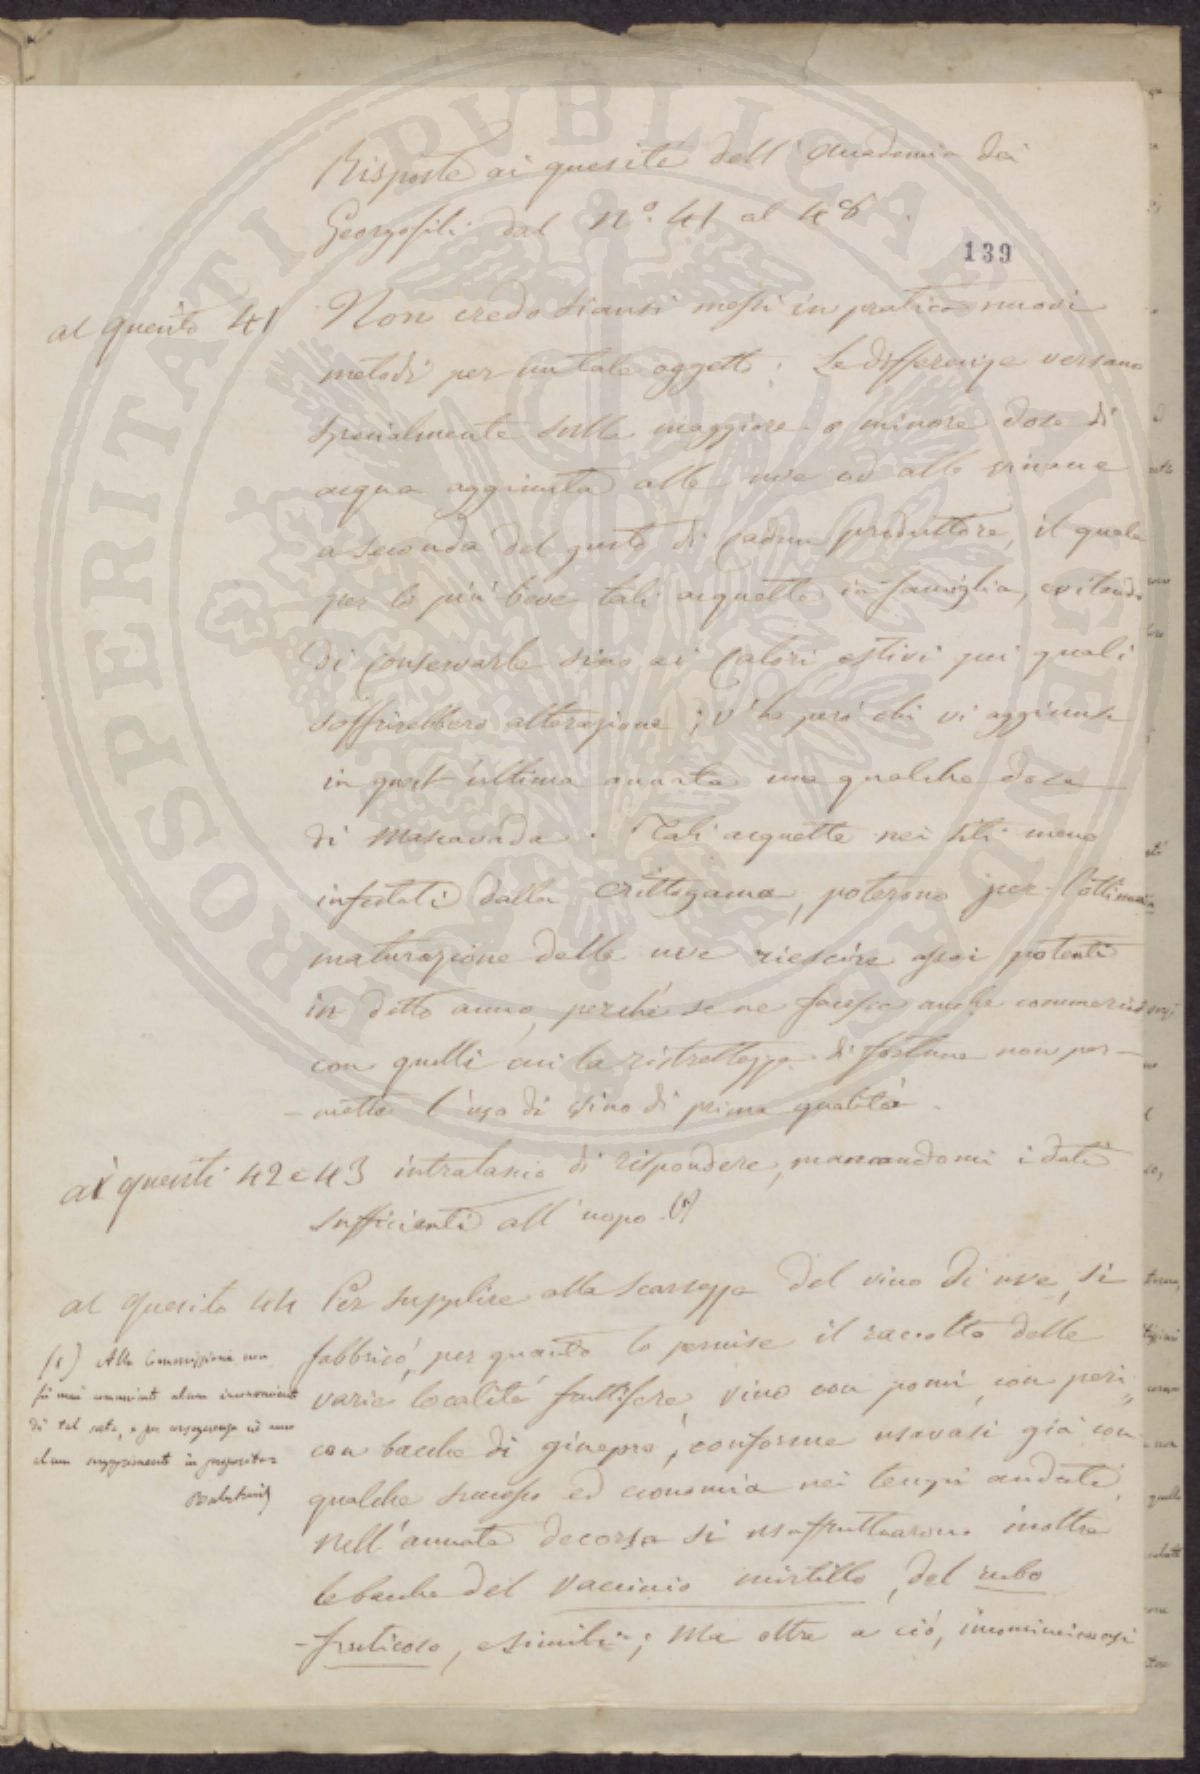 Risposte ai quesiti dell'Accademia dei
Georgofili dal n.º 41 al 48.
139
al quesito 41 Non credo siansi messi in pratica nuovi
metodi per un tale oggetto; Le differenze versano
specialmente sulla maggiore o minore dose di
acqua aggiunta alle uve od alle vinacce
a seconda del gusto di cadun produttore, il quale
per lo più beve tali acquette in famiglia, evitando
di conservarle sino ai calori estivi pei quali
soffrirebbero alterazione; v'ha però chi vi aggiunse
in quest'ultima annata una qualche dose
di mascavada. Tali acquette nei siti meno
infestati dalla crittogama, poterono per l'ottima
maturazione delle uve riescire assai potenti
in detto anno, perché se ne facesse anche commercio
con quelli cui la ristrettezza di fortuna non per-
-mette l'uso di vino di prima qualità.
ai quesiti 42 e 43 intralascio di rispondere, mancandomi i dati
sufficienti all'uopo. (1)
al quesito 44 Per supplire alla scarsezza del vino di uve, si
fabbricò, per quanto lo permise il raccolto delle
varie località fruttifere, vino con pomi, con peri,
con bacche di ginepro, conforme usavasi già con
qualche successo ed economia nei tempi andati.
Nell'annata decorsa si usufruttarono inoltre
le bacche del vaccinio mirtillo, del rubo
-fruticoso, e simili; Ma oltre a ciò, incominciavasi
(1) Alla Commissione non
fu mai comunicato alcun inconveniente
di tal sorta, e per conseguenza ed anno
alcun in proposito
PROSPERITATI PUBLICAE AUGENDAE